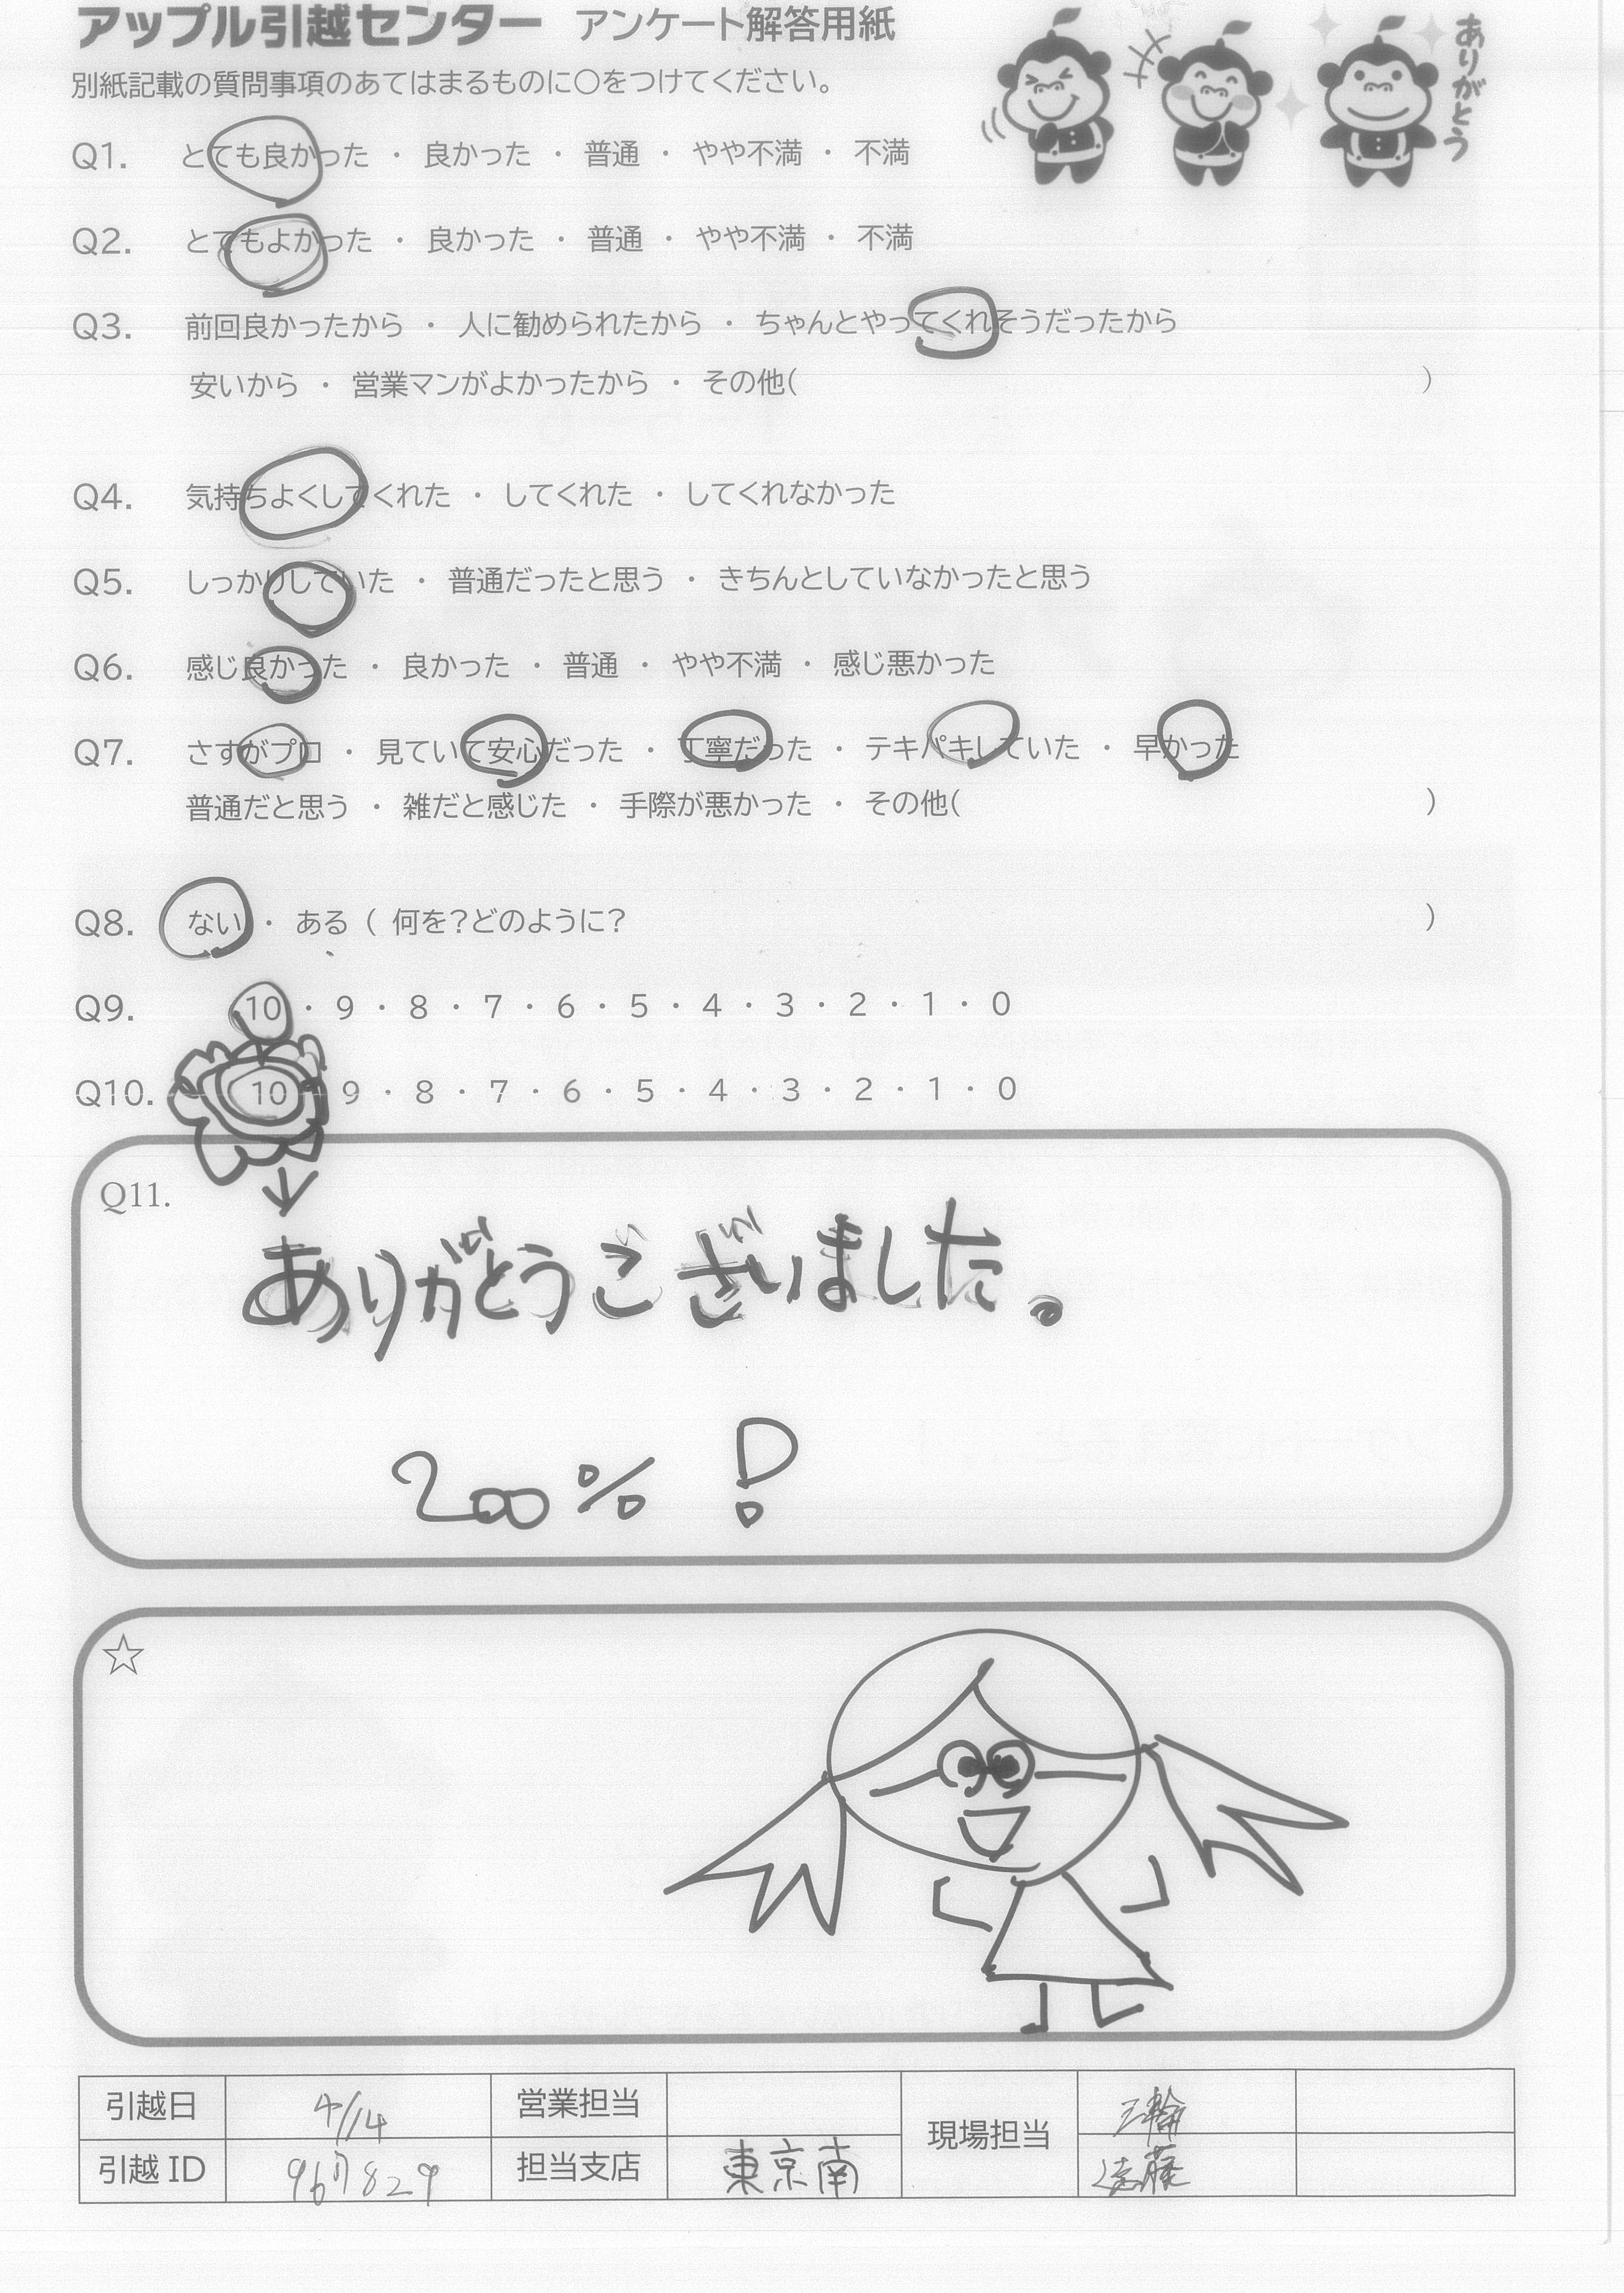 アップル引越センター アンケート解答用紙
ありがとう
別紙記載の質問事項のあてはまるものに○をつけてください。
Q1. とても良かった ・ 良かった ・ 普通 ・ やや不満 ・ 不満
Q2. とてもよかった ・ 良かった ・ 普通 ・ やや不満 ・ 不満
Q3. 前回良かったから ・ 人に勧められたから ・ ちゃんとやってくれそうだったから
安いから ・ 営業マンがよかったから ・ その他( )
Q4. 気持ちよくしてくれた ・ してくれた ・ してくれなかった
Q5. しっかりしていた ・ 普通だったと思う ・ きちんとしていなかったと思う
Q6. 感じ良かった ・ 良かった ・ 普通 ・ やや不満 ・ 感じ悪かった
Q7. さすがプロ ・ 見ていて安心だった ・ 丁寧だった ・ テキパキしていた ・ 早かった
普通だと思う ・ 雑だと感じた ・ 手際が悪かった ・ その他( )
Q8. ない ・ ある ( 何を?どのように? )
Q9. 10 ・ 9 ・ 8 ・ 7 ・ 6 ・ 5 ・ 4 ・ 3 ・ 2 ・ 1 ・ 0
Q10. 10 ・ 9 ・ 8 ・ 7 ・ 6 ・ 5 ・ 4 ・ 3 ・ 2 ・ 1 ・ 0
Q11.
ありがとうございました。
200% !
☆
引越日 4/14 営業担当 現場担当 三輪
引越 ID 担当支店 東京南 遠藤